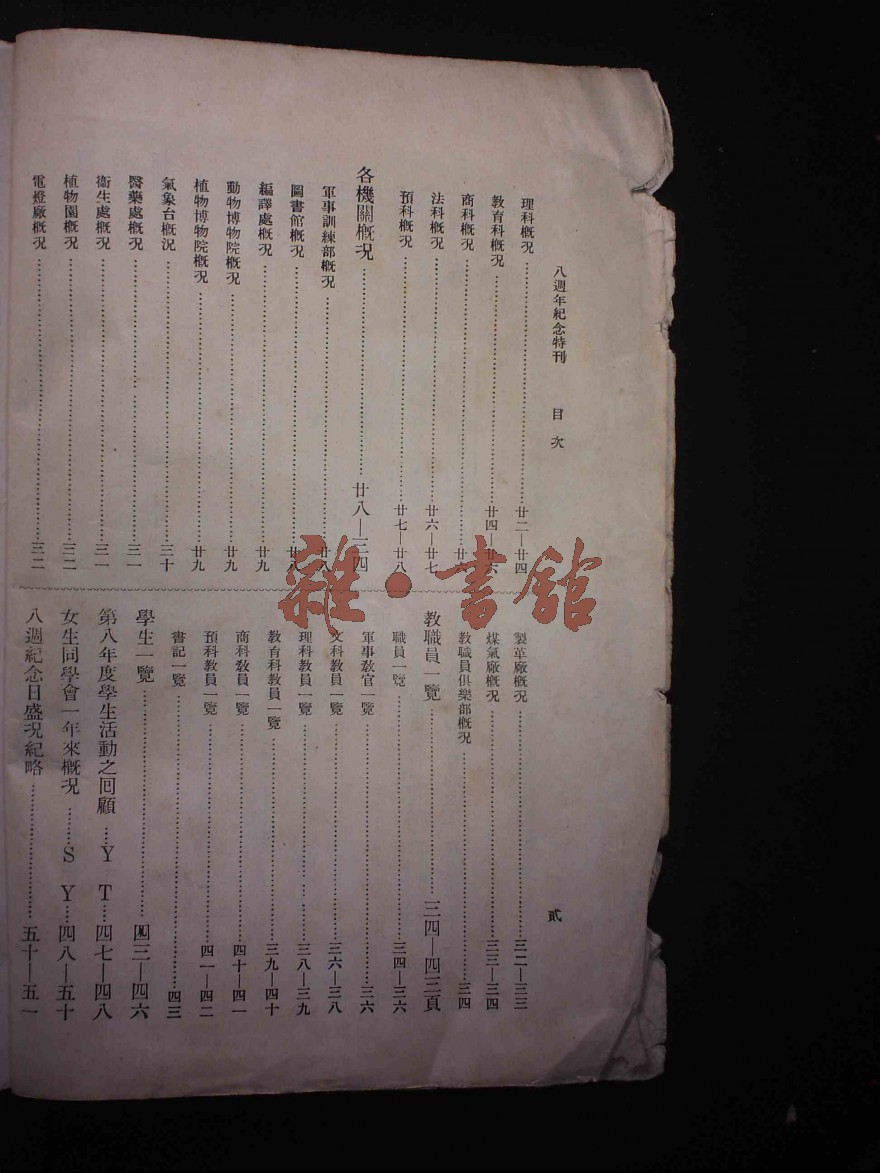 八週年紀念特刊　目次　貳
理科概況……廿二—廿四
教育科概況……廿四—廿六
商科概況……廿六
法科概況……廿六—廿七
預科概況……廿七—廿八
各機關概況……廿八—三四
軍事訓練部概況……廿八
圖書館概況……廿八
編譯處概況……廿九
動物博物院概況……廿九
植物博物院概況……廿九
氣象台概況……三十
醫藥處概況……三一
衛生處概況……三一
植物園概況……三二
電燈廠概況……三二
製革廠概況……三二—三三
煤氣廠概況……三三—三四
教職員俱樂部概況……三四
教職員一覽……三四—四三頁
職員一覽……三四—三六
軍事教官一覽……三六
文科教員一覽……三六—三八
理科教員一覽……三八—三九
教育科教員一覽……三九—四十
商科教員一覽……四十—四一
預科教員一覽……四一—四二
書記一覽……四三
學生一覽……四三—四六
第八年度學生活動之回顧……Y T……四七—四八
女生同學會一年來概況……S Y……四八—五十
八週紀念日盛況紀略……五十—五一
雜·書館